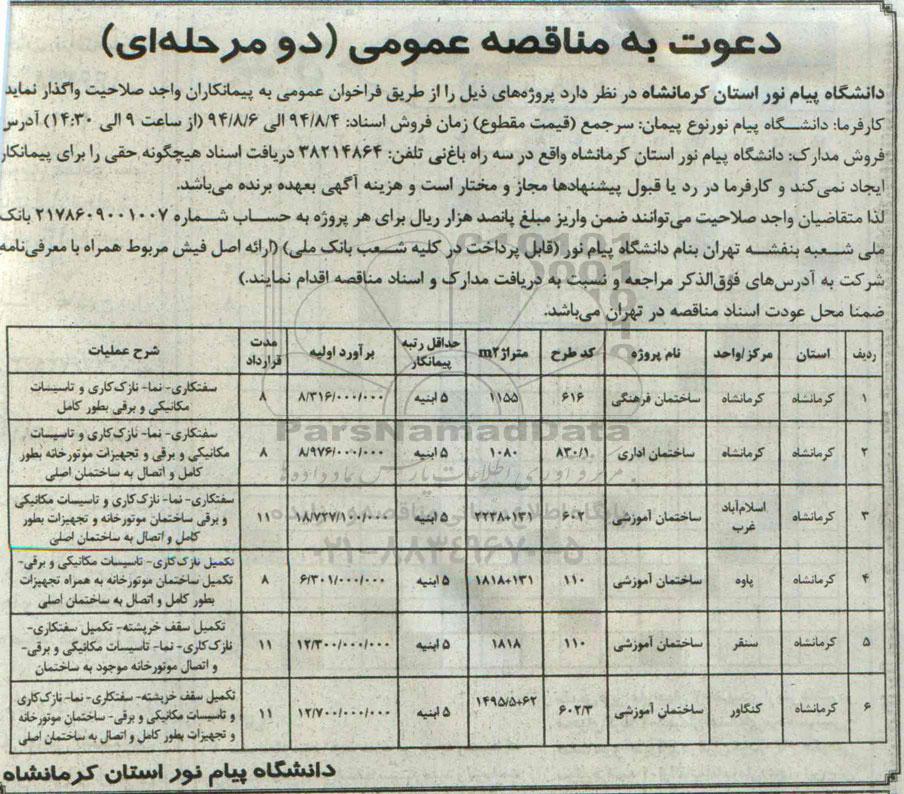 دعوت به مناقصه عمومی (دو مرحله‌ای)
دانشگاه پیام نور استان کرمانشاه در نظر دارد پروژه‌های ذیل را از طریق فراخوان عمومی به پیمانکاران واجد صلاحیت واگذار نماید
کارفرما: دانشگاه پیام نورنوع پیمان: سرجمع (قیمت مقطوع) زمان فروش اسناد: ۹۴/۸/۴ الی ۹۴/۸/۶ (از ساعت ۹ الی ۱۴:۳۰) آدرس
فروش مدارک: دانشگاه پیام نور استان کرمانشاه واقع در سه راه باغ‌نی تلفن: ۳۸۲۱۴۸۶۴ دریافت اسناد هیچگونه حقی را برای پیمانکار
ایجاد نمی‌کند و کارفرما در رد یا قبول پیشنهادها مجاز و مختار است و هزینه آگهی بعهده برنده می‌باشد.
لذا متقاضیان واجد صلاحیت می‌توانند ضمن واریز مبلغ پانصد هزار ریال برای هر پروژه به حساب شماره ۲۱۷۸۶۰۹۰۰۱۰۰۷ بانک
ملی شعبه بنفشه تهران بنام دانشگاه پیام نور (قابل پرداخت در کلیه شعب بانک ملی) (ارائه اصل فیش مربوط همراه با معرفی‌نامه
شرکت به آدرس‌های فوق‌الذکر مراجعه و نسبت به دریافت مدارک و اسناد مناقصه اقدام نمایند.)
ضمنا محل عودت اسناد مناقصه در تهران می‌باشد.
ردیف استان مرکز/واحد نام پروژه کد طرح متراژm۲ حداقل رتبه پیمانکار برآورد اولیه مدت قرارداد شرح عملیات
۱ کرمانشاه کرمانشاه ساختمان فرهنگی ۶۱۶ ۱۱۵۵ ۵ ابنیه ۸/۳۱۶/۰۰۰/۰۰۰ ۸ سفتکاری- نما- نازک‌کاری و تاسیسات
مکانیکی و برقی بطور کامل
۲ کرمانشاه کرمانشاه ساختمان اداری ۸۳۰/۱ ۱۰۸۰ ۵ ابنیه ۸/۹۷۶/۰۰۰/۰۰۰ ۸ سفتکاری- نما- نازک‌کاری و تاسیسات
مکانیکی و برقی و تجهیزات موتورخانه بطور
کامل و اتصال به ساختمان اصلی
۳ کرمانشاه اسلام‌آباد غرب ساختمان آموزشی ۶۰۲ ۲۲۲۸+۱۳۱ ۵ ابنیه ۱۸/۷۲۷/۱۰۰/۰۰۰ ۱۱ سفتکاری- نما- نازک‌کاری و تاسیسات مکانیکی
و برقی ساختمان موتورخانه و تجهیزات بطور
کامل و اتصال به ساختمان اصلی
۴ کرمانشاه پاوه ساختمان آموزشی ۱۱۰ ۱۸۱۸+۱۳۱ ۵ ابنیه ۶/۳۰۱/۰۰۰/۰۰۰ ۸ تکمیل نازک‌کاری- تاسیسات مکانیکی و برقی-
تکمیل ساختمان موتورخانه به همراه تجهیزات
بطور کامل و اتصال به ساختمان اصلی
۵ کرمانشاه سنقر ساختمان آموزشی ۱۱۰ ۱۸۱۸ ۵ ابنیه ۱۲/۳۰۰/۰۰۰/۰۰۰ ۱۱ تکمیل سقف خرپشته- تکمیل سفتکاری-
نازک‌کاری- نما- تاسیسات مکانیکی و برقی-
و اتصال موتورخانه موجود به ساختمان
۶ کرمانشاه کنگاور ساختمان آموزشی ۶۰۲/۳ ۱۴۹۵/۵+۶۲ ۵ ابنیه ۱۲/۷۰۰/۰۰۰/۰۰۰ ۱۱ تکمیل سقف خرپشته- سفتکاری- نما- نازک‌کاری
و تاسیسات مکانیکی و برقی- ساختمان موتورخانه
و تجهیزات بطور کامل و اتصال به ساختمان اصلی
دانشگاه پیام نور استان کرمانشاه
ParsNamadData
۰۲۱-۸۸۳۴۹۶۷۰-۵